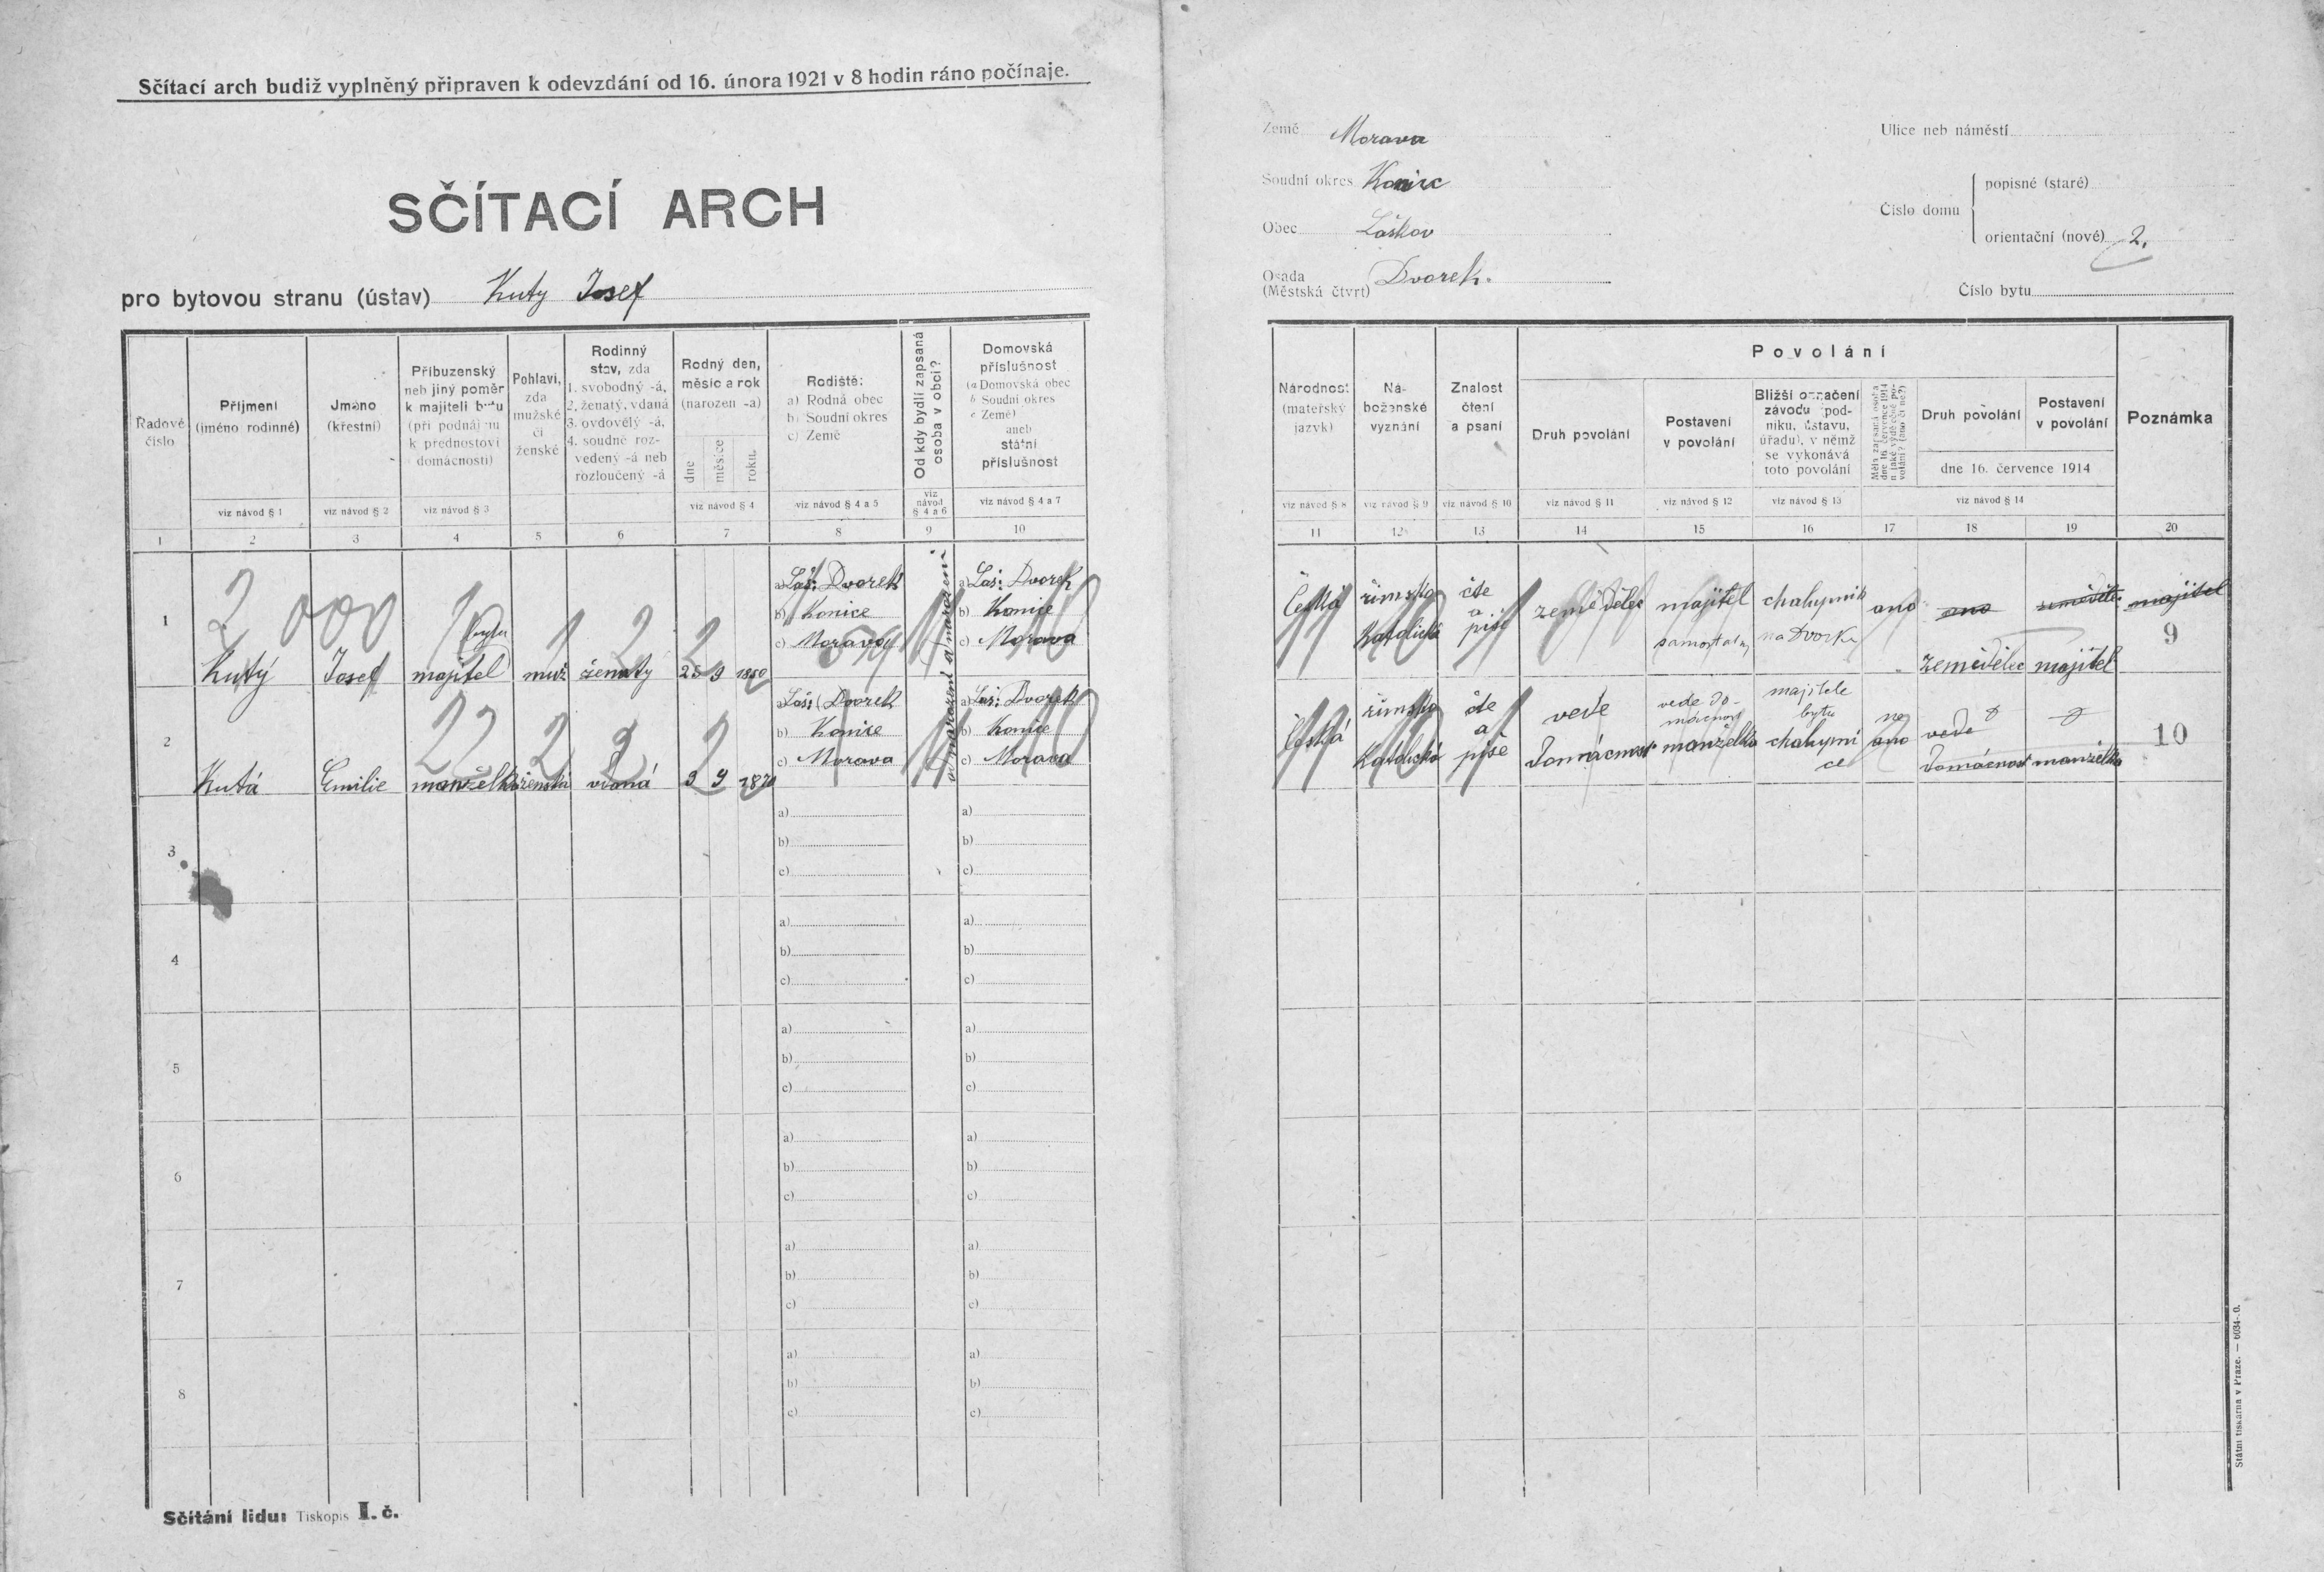 Sčítací arch budiž vyplněný připraven k odevzdání od 16. února 1921 v 8 hodin ráno počínaje.
SČÍTACÍ ARCH
pro bytovou stranu (ústav) Kuty Josef
Země Morava
Soudní okres Konice
Obec Laškov
Osada (Městská čtvrt) Dvorek.
Ulice neb náměstí
Číslo domu
popisné (staré)
orientační (nové) 2.
Číslo bytu
Řadové číslo
Příjmení (jméno rodinné)
viz návod § 1
Jméno (křestní)
viz návod § 2
Příbuzenský neb jiný poměr k majiteli bytu (při podnájmu k přednostovi domácnosti)
viz návod § 3
Pohlaví, zda mužské či ženské
Rodinný stav, zda
1. svobodný -á,
2. ženatý, vdaná
3. ovdovělý -á,
4. soudně rozvedený -á neb rozloučený -á
Rodný den, měsíc a rok (narozen -a)
dne
měsíce
roku
viz návod § 4
Rodiště:
a) Rodná obec
b) Soudní okres
c) Země
viz návod § 4 a 5
Od kdy bydlí zapsaná osoba v obci?
viz návod § 4 a 6
Domovská příslušnost
(a Domovská obec
b Soudní okres
c Země)
aneb
státní příslušnost
viz návod § 4 a 7
Národnost (mateřský jazyk)
viz návod § 8
Náboženské vyznání
viz návod § 9
Znalost čtení a psaní
viz návod § 10
Povolání
Druh povolání
viz návod § 11
Postavení v povolání
viz návod § 12
Bližší označení závodu (podniku, ústavu, úřadu), v němž se vykonává toto povolání
viz návod § 13
Měla zapsaná osoba dne 16. července 1914 nějaké výdělečné povolání? (ano či ne?)
Druh povolání
Postavení v povolání
dne 16. července 1914
viz návod § 14
Poznámka
1 2 3 4 5 6 7 8 9 10 11 12 13 14 15 16 17 18 19 20
1
2 000 1 1 2 2
Kutý Josef majitel bytu muž ženatý 25 9 1880
a) Laš: Dvorek
b) Konice
c) Morava
od narození
a) Laš: Dvorek
b) Konice
c) Morava
Česká římsko katolická čte a píše zemědělec majitel samostatný chalupník na Dvorku ano ano zeměděl. majitel
9
zemědělec majitel
2
22 2 2 2
Kutá Emilie manželka ženské vdaná 3 9
a) Laš: Dvorek
b) Konice
c) Morava
od narození
a) Laš: Dvorek
b) Konice
c) Morava
Česká římsko katolická čte a píše vede domácnost vede domácnost manželka majitele bytu chalupnice ne ano vede domácnost manželka
10
3
a)
b)
c)
a)
b)
c)
4
a)
b)
c)
a)
b)
c)
5
a)
b)
c)
a)
b)
c)
6
a)
b)
c)
a)
b)
c)
7
a)
b)
c)
a)
b)
c)
8
a)
b)
c)
a)
b)
c)
Sčítání lidu: Tiskopis I. č.
Státní tiskárna v Praze. — 6034-.0.